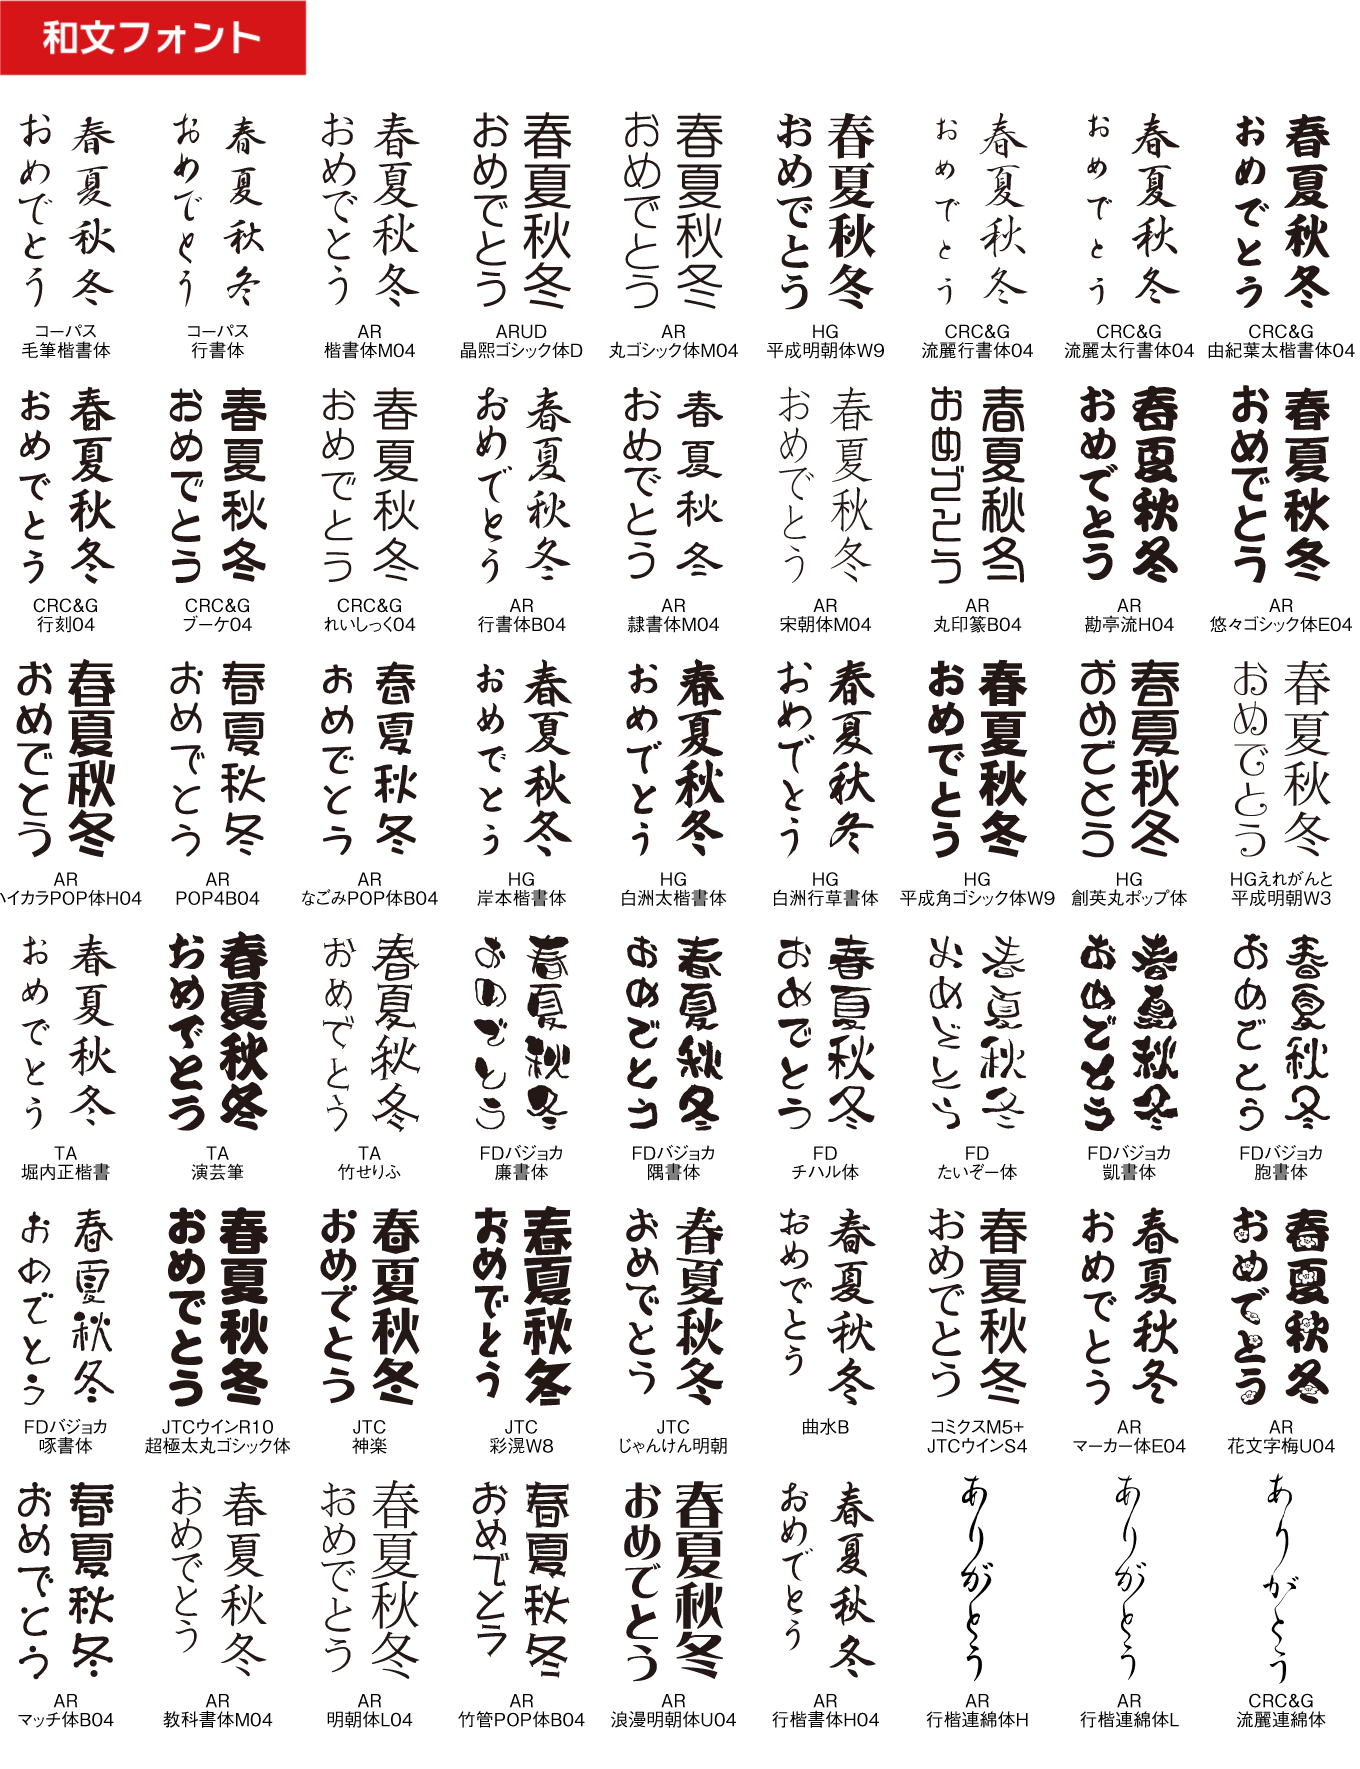 和文フォント
春夏秋冬
おめでとう
コーパス
毛筆楷書体
春夏秋冬
おめでとう
コーパス
行書体
春夏秋冬
おめでとう
AR
楷書体M04
春夏秋冬
おめでとう
ARUD
晶熙ゴシック体D
春夏秋冬
おめでとう
AR
丸ゴシック体M04
春夏秋冬
おめでとう
HG
平成明朝体W9
春夏秋冬
おめでとう
CRC&G
流麗行書体04
春夏秋冬
おめでとう
CRC&G
流麗太行書体04
春夏秋冬
おめでとう
CRC&G
由紀葉太楷書体04
春夏秋冬
おめでとう
CRC&G
行刻04
春夏秋冬
おめでとう
CRC&G
ブーケ04
春夏秋冬
おめでとう
CRC&G
れいしっく04
春夏秋冬
おめでとう
AR
行書体B04
春夏秋冬
おめでとう
AR
隷書体M04
春夏秋冬
おめでとう
AR
宋朝体M04
春夏秋冬
おめでとう
AR
丸印篆B04
春夏秋冬
おめでとう
AR
勘亭流H04
春夏秋冬
おめでとう
AR
悠々ゴシック体E04
春夏秋冬
おめでとう
AR
ハイカラPOP体H04
春夏秋冬
おめでとう
AR
POP4B04
春夏秋冬
おめでとう
AR
なごみPOP体B04
春夏秋冬
おめでとう
HG
岸本楷書体
春夏秋冬
おめでとう
HG
白洲太楷書体
春夏秋冬
おめでとう
HG
白洲行草書体
春夏秋冬
おめでとう
HG
平成角ゴシック体W9
春夏秋冬
おめでとう
HG
創英丸ポップ体
春夏秋冬
おめでとう
HGえれがんと
平成明朝W3
春夏秋冬
おめでとう
TA
堀内正楷書
春夏秋冬
おめでとう
TA
演芸筆
春夏秋冬
おめでとう
TA
竹せりふ
春夏秋冬
おめでとう
FDバジョカ
廉書体
春夏秋冬
おめでとう
FDバジョカ
隅書体
春夏秋冬
おめでとう
FD
チハル体
春夏秋冬
おめでとう
FD
たいぞー体
春夏秋冬
おめでとう
FDバジョカ
凱書体
春夏秋冬
おめでとう
FDバジョカ
胞書体
春夏秋冬
おめでとう
FDバジョカ
啄書体
春夏秋冬
おめでとう
JTCウインR10
超極太丸ゴシック体
春夏秋冬
おめでとう
JTC
神楽
春夏秋冬
おめでとう
JTC
彩滉W8
春夏秋冬
おめでとう
JTC
じゃんけん明朝
春夏秋冬
おめでとう
曲水B
春夏秋冬
おめでとう
コミクスM5+
JTCウインS4
春夏秋冬
おめでとう
AR
マーカー体E04
春夏秋冬
おめでとう
AR
花文字梅U04
春夏秋冬
おめでとう
AR
マッチ体B04
春夏秋冬
おめでとう
AR
教科書体M04
春夏秋冬
おめでとう
AR
明朝体L04
春夏秋冬
おめでとう
AR
竹管POP体B04
春夏秋冬
おめでとう
AR
浪漫明朝体U04
春夏秋冬
おめでとう
AR
行楷書体H04
ありがとう
AR
行楷連綿体H
ありがとう
AR
行楷連綿体L
ありがとう
CRC&G
流麗連綿体